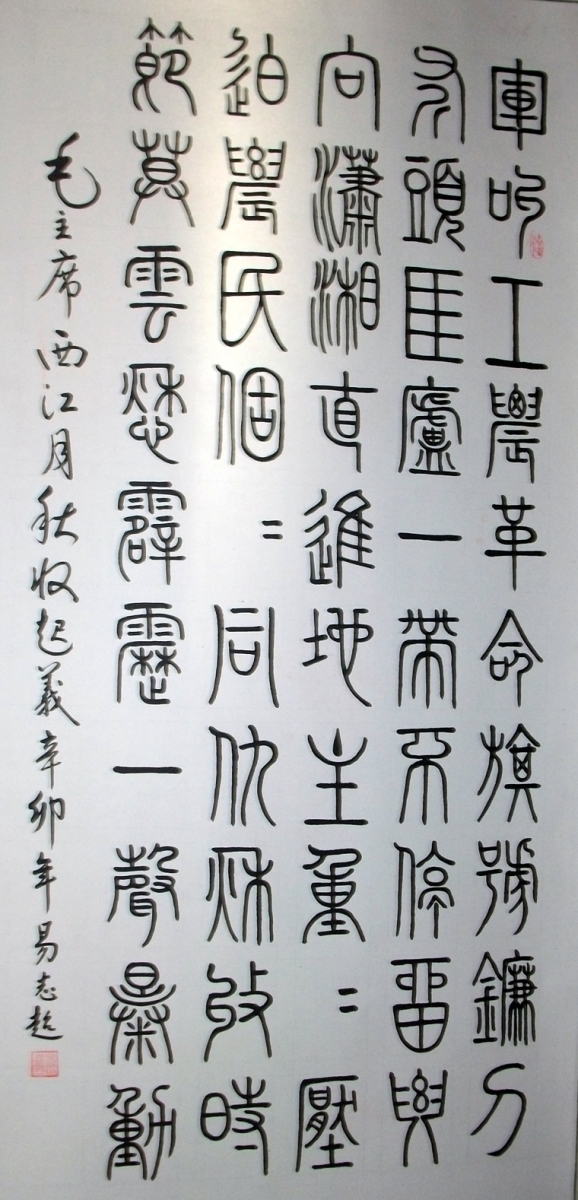 軍叫工農革命旗號鐮刀
斧頭匡廬一帶不停留要
向瀟湘直進地主重〻壓
迫農民個〻同仇秋收時
節莫雲愁霹靂一聲暴動
毛主席西江月秋收起義辛卯年易志超